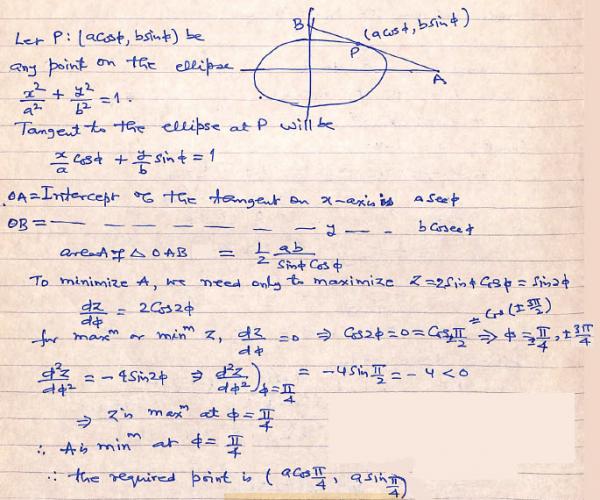 B (acosϕ, bsinϕ)
Let P: (acosϕ, bsinϕ) be
any point on the ellipse
P
A
x²/a² + y²/b² = 1.
Tangent to the ellipse at P will be
x/a cosϕ + y/b sinϕ = 1
OA = Intercept of the tangent on x-axis is a secϕ
OB = — — — — — — — y — — b cosecϕ
area of Δ OAB = 1/2 ab/(sinϕ cosϕ)
To minimize A, we need only to maximize Z = 2sinϕ cosϕ = sin2ϕ
dz/dϕ = 2cos2ϕ = cos(±3π/2)
for maxᵐ or minᵐ Z, dz/dϕ = 0 ⇒ cos2ϕ = 0 = cos±π/2 ⇒ ϕ = ±π/4, ±3π/4
d²z/dϕ² = -4sin2ϕ ⇒ d²z/dϕ²)ϕ=π/4 = -4sin π/2 = -4 < 0
⇒ Z is maxᵐ at ϕ = π/4
∴ A is minᵐ at ϕ = π/4
∴ the required point is (acos π/4, asin π/4)